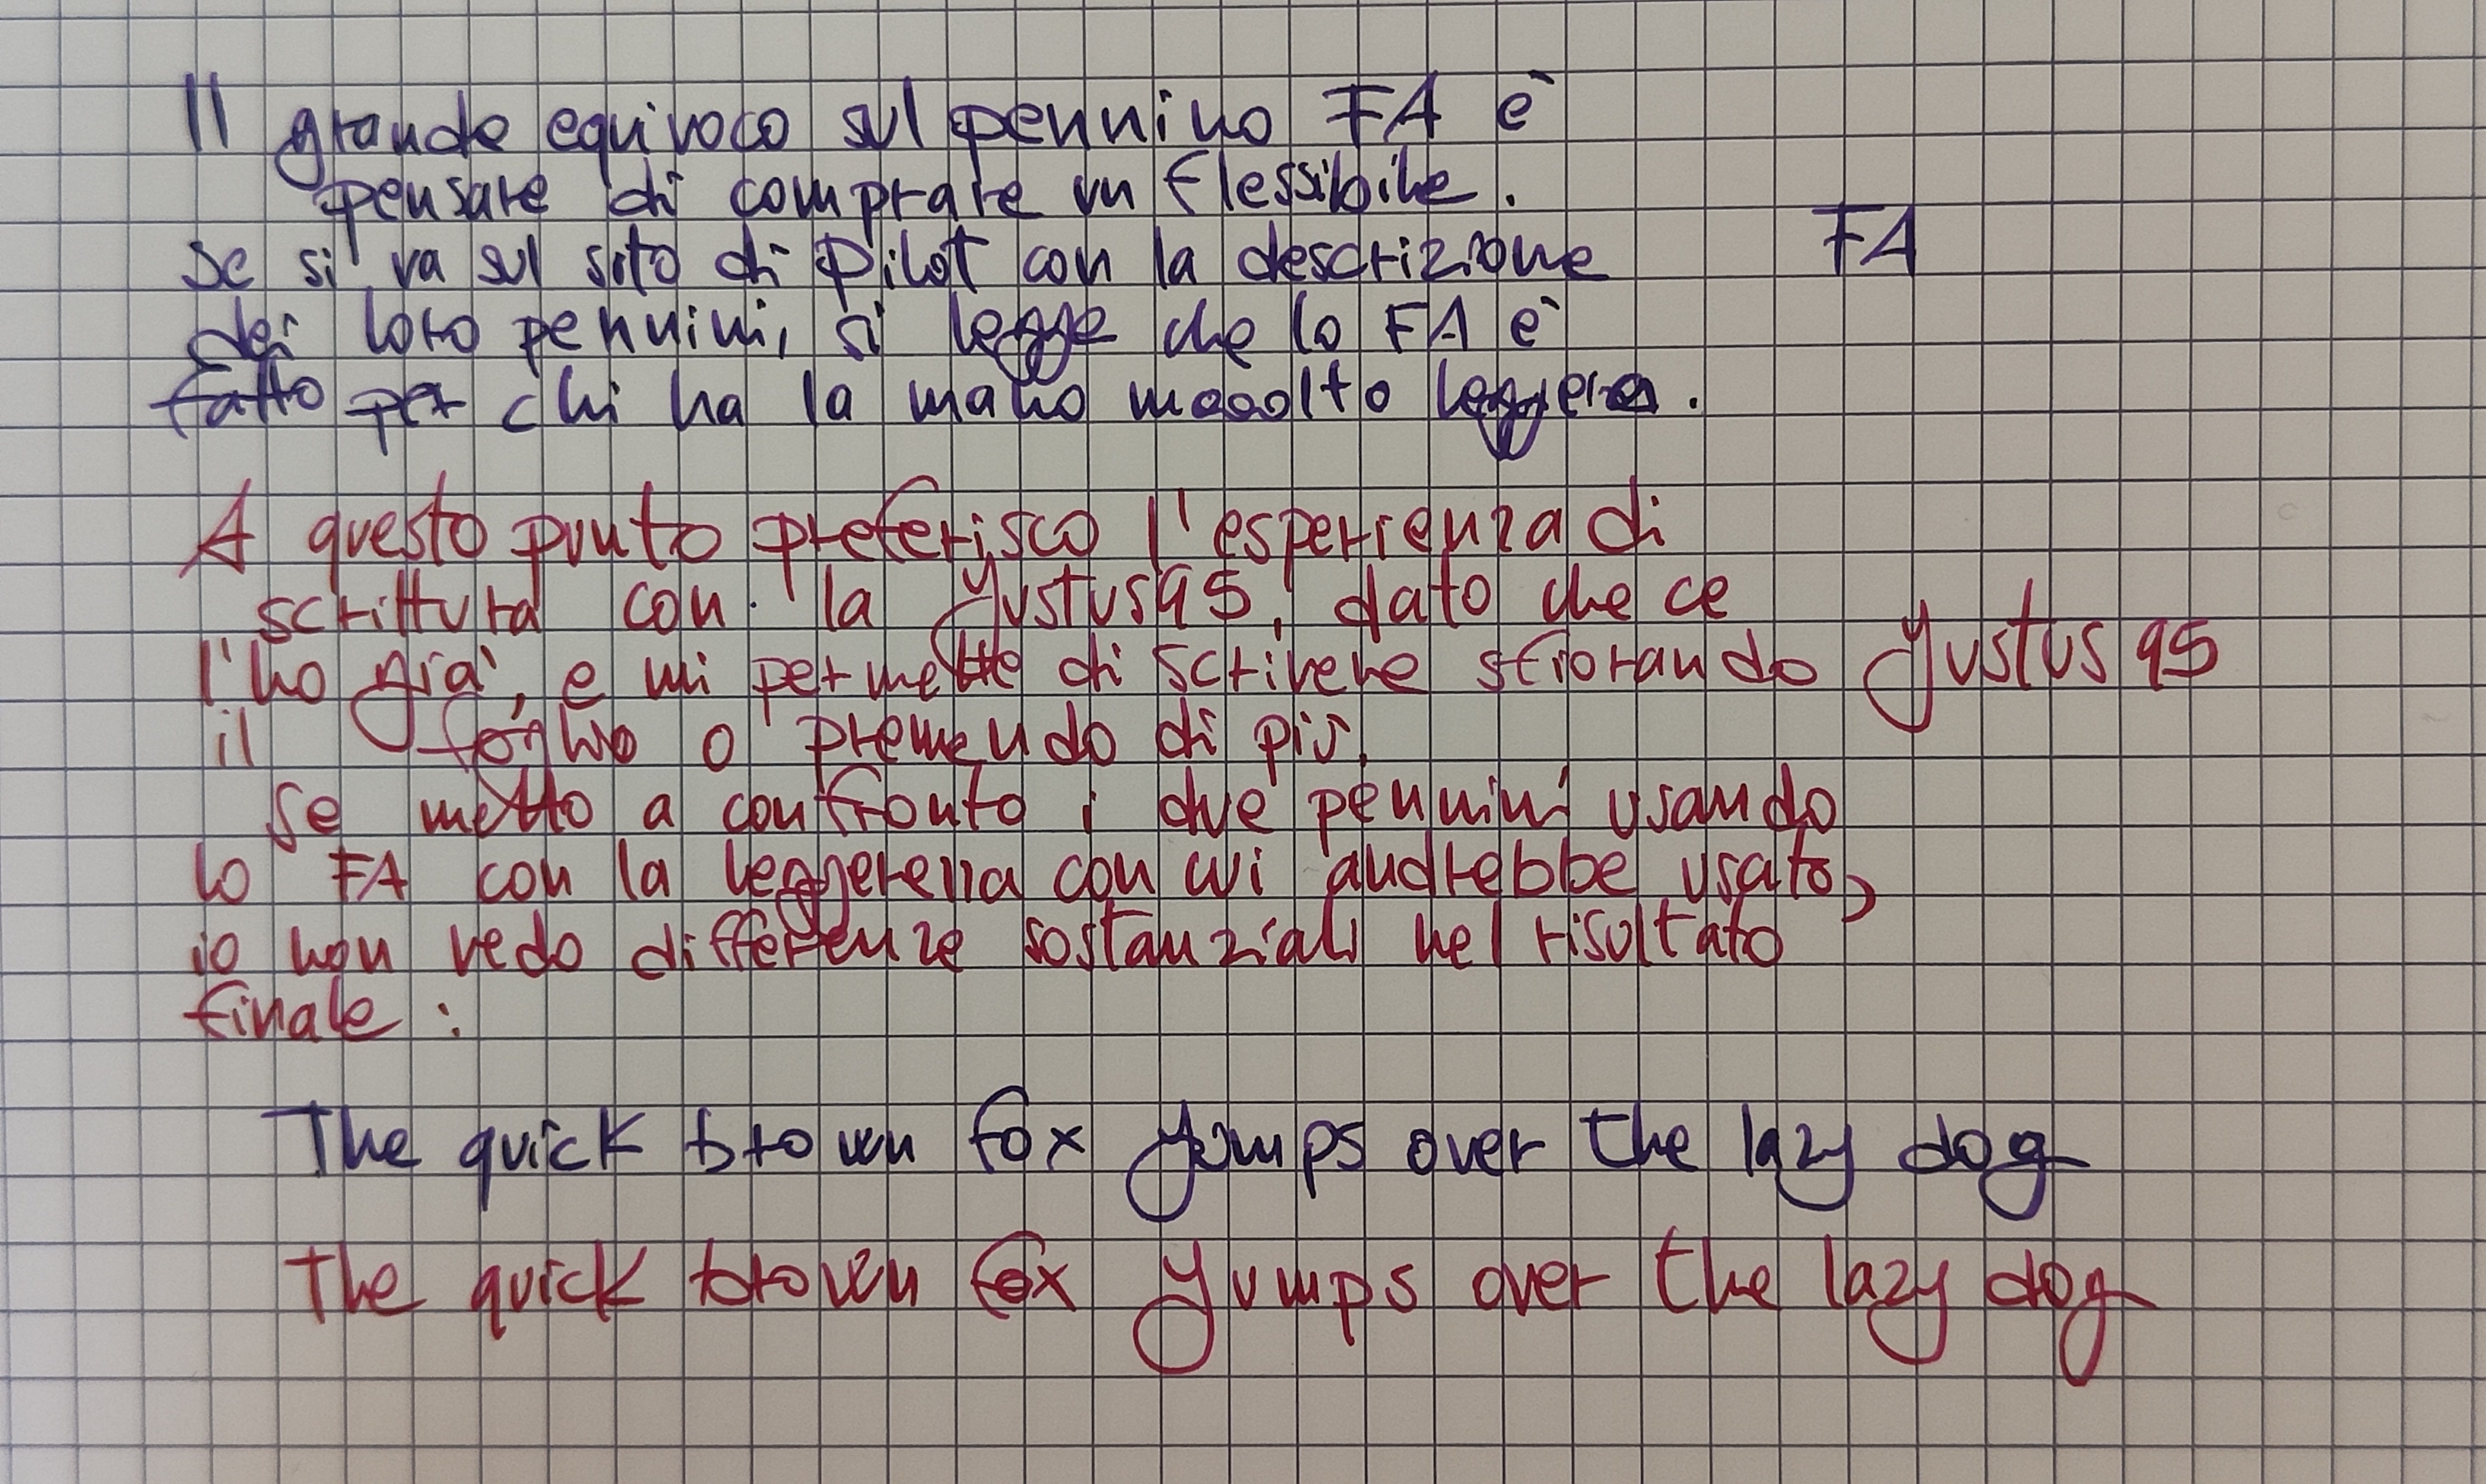 Il grande equivoco sul pennino FA è
pensare di comprare un flessibile.
Se si va sul sito di Pilot con la descrizione
FA
dei loro pennini, si legge che lo FA è
fatto per chi ha la mano mooolto leggera.
A questo punto preferisco l'esperienza di
scrittura con la Justus95, dato che ce
l'ho già, e mi permette di scrivere sfiorando
Justus 95
il foglio o premendo di più.
Se metto a confronto i due pennini usando
lo FA con la leggerezza con cui andrebbe usato,
io non vedo differenze sostanziali nel risultato
finale:
The quick brown fox jumps over the lazy dog
The quick brown fox jumps over the lazy dog